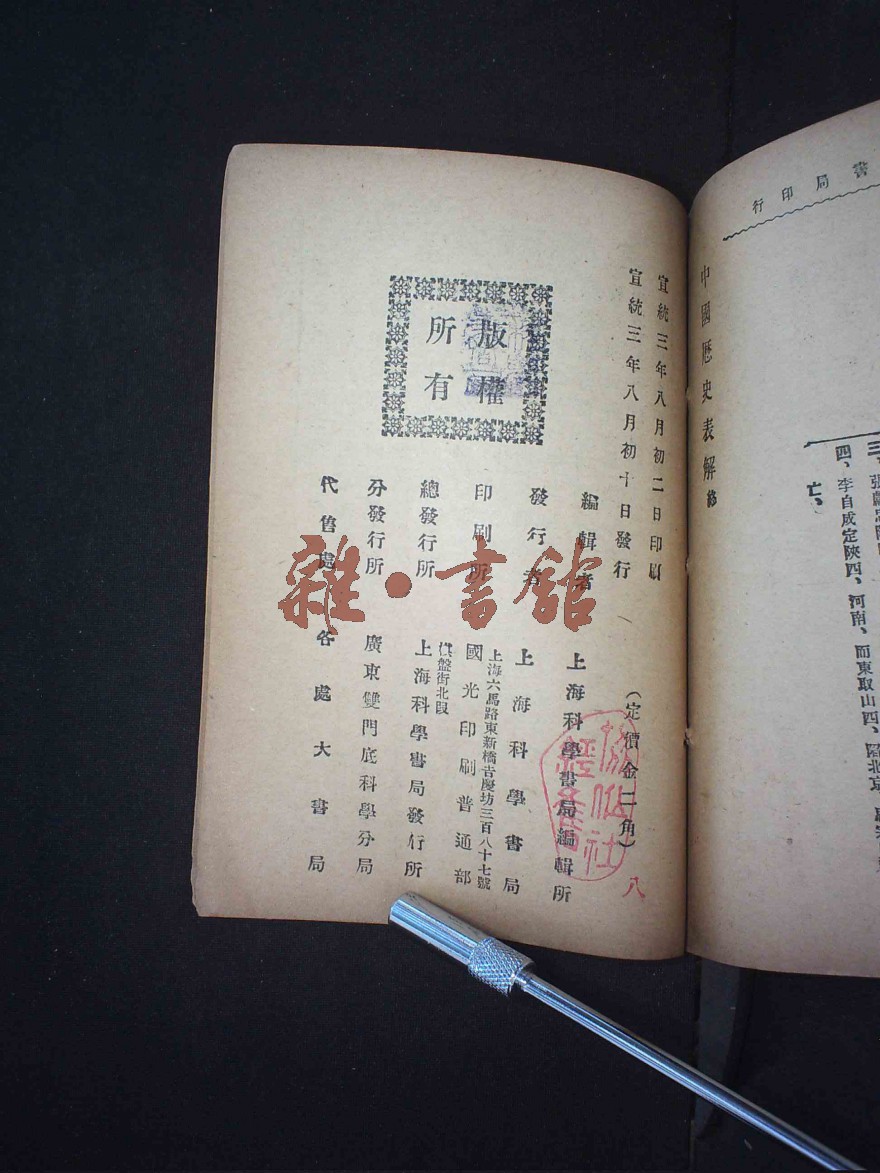 書局印行
中國歷史表解
四、李自成定陝四、河南、而東取山四、
亡、
宣統三年八月初二日印刷
宣統三年八月初十日發行
(定價金二角)
編輯者 上海科學書局編輯所
發行者 上海科學書局
上海六馬路東新橋吉慶坊三百八十七號
印刷所 國光印刷普通部
棋盤街北段
總發行所 上海科學書局發行所
分發行所 廣東雙門底科學分局
代售處 各處大書局
版權
所有
八
雜·書館